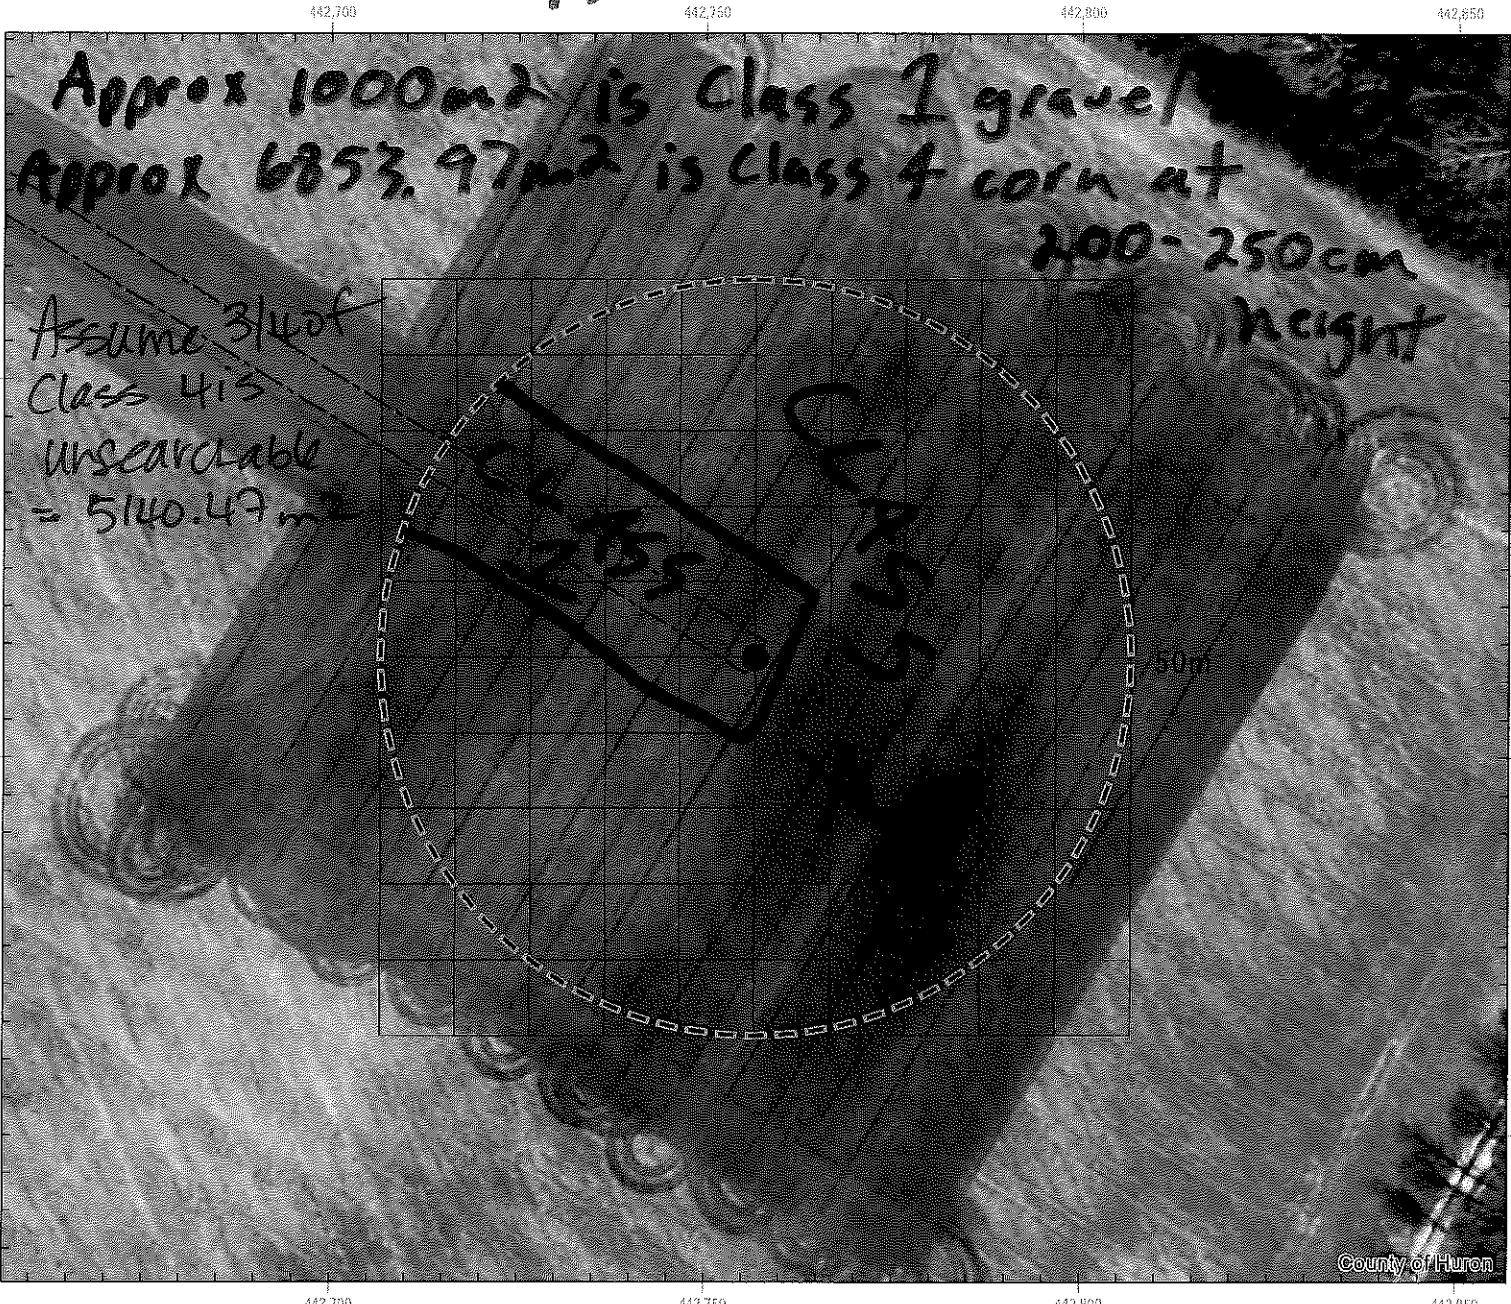 442,700 442,750 442,800 442,850
Approx 1000m2 is Class 1 gravel
Approx 6853.97m2 is Class 4 corn at
200-250cm
height
Assume 3/4 of
Class 4 is
unsearchable
= 5140.47m2
CLASS
CLASS
50m
County of Huron
442,700 442,750 442,800 442,850